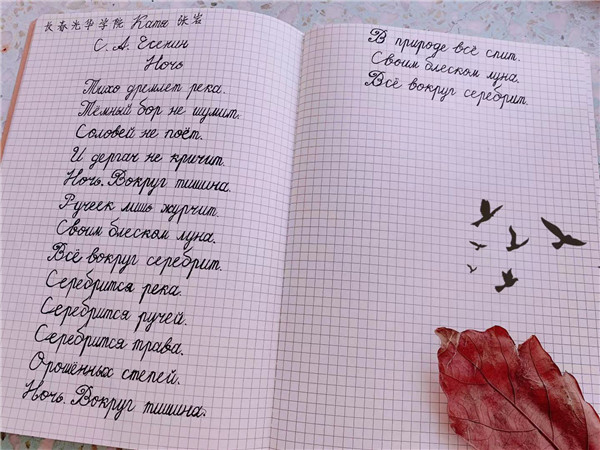 长春光华学院 Катя 张岩
С. А. Есенин
Ночь
Тихо дремлет река.
Тёмный бор не шумит.
Соловей не поёт.
И дергач не кричит.
Ночь. Вокруг тишина.
Ручеек лишь журчит.
Своим блеском луна.
Всё вокруг серебрит.
Серебрится река.
Серебрится ручей.
Серебрится трава.
Орошённых степей.
Ночь. Вокруг тишина.
В природе всё спит.
Своим блеском луна.
Всё вокруг серебрит.